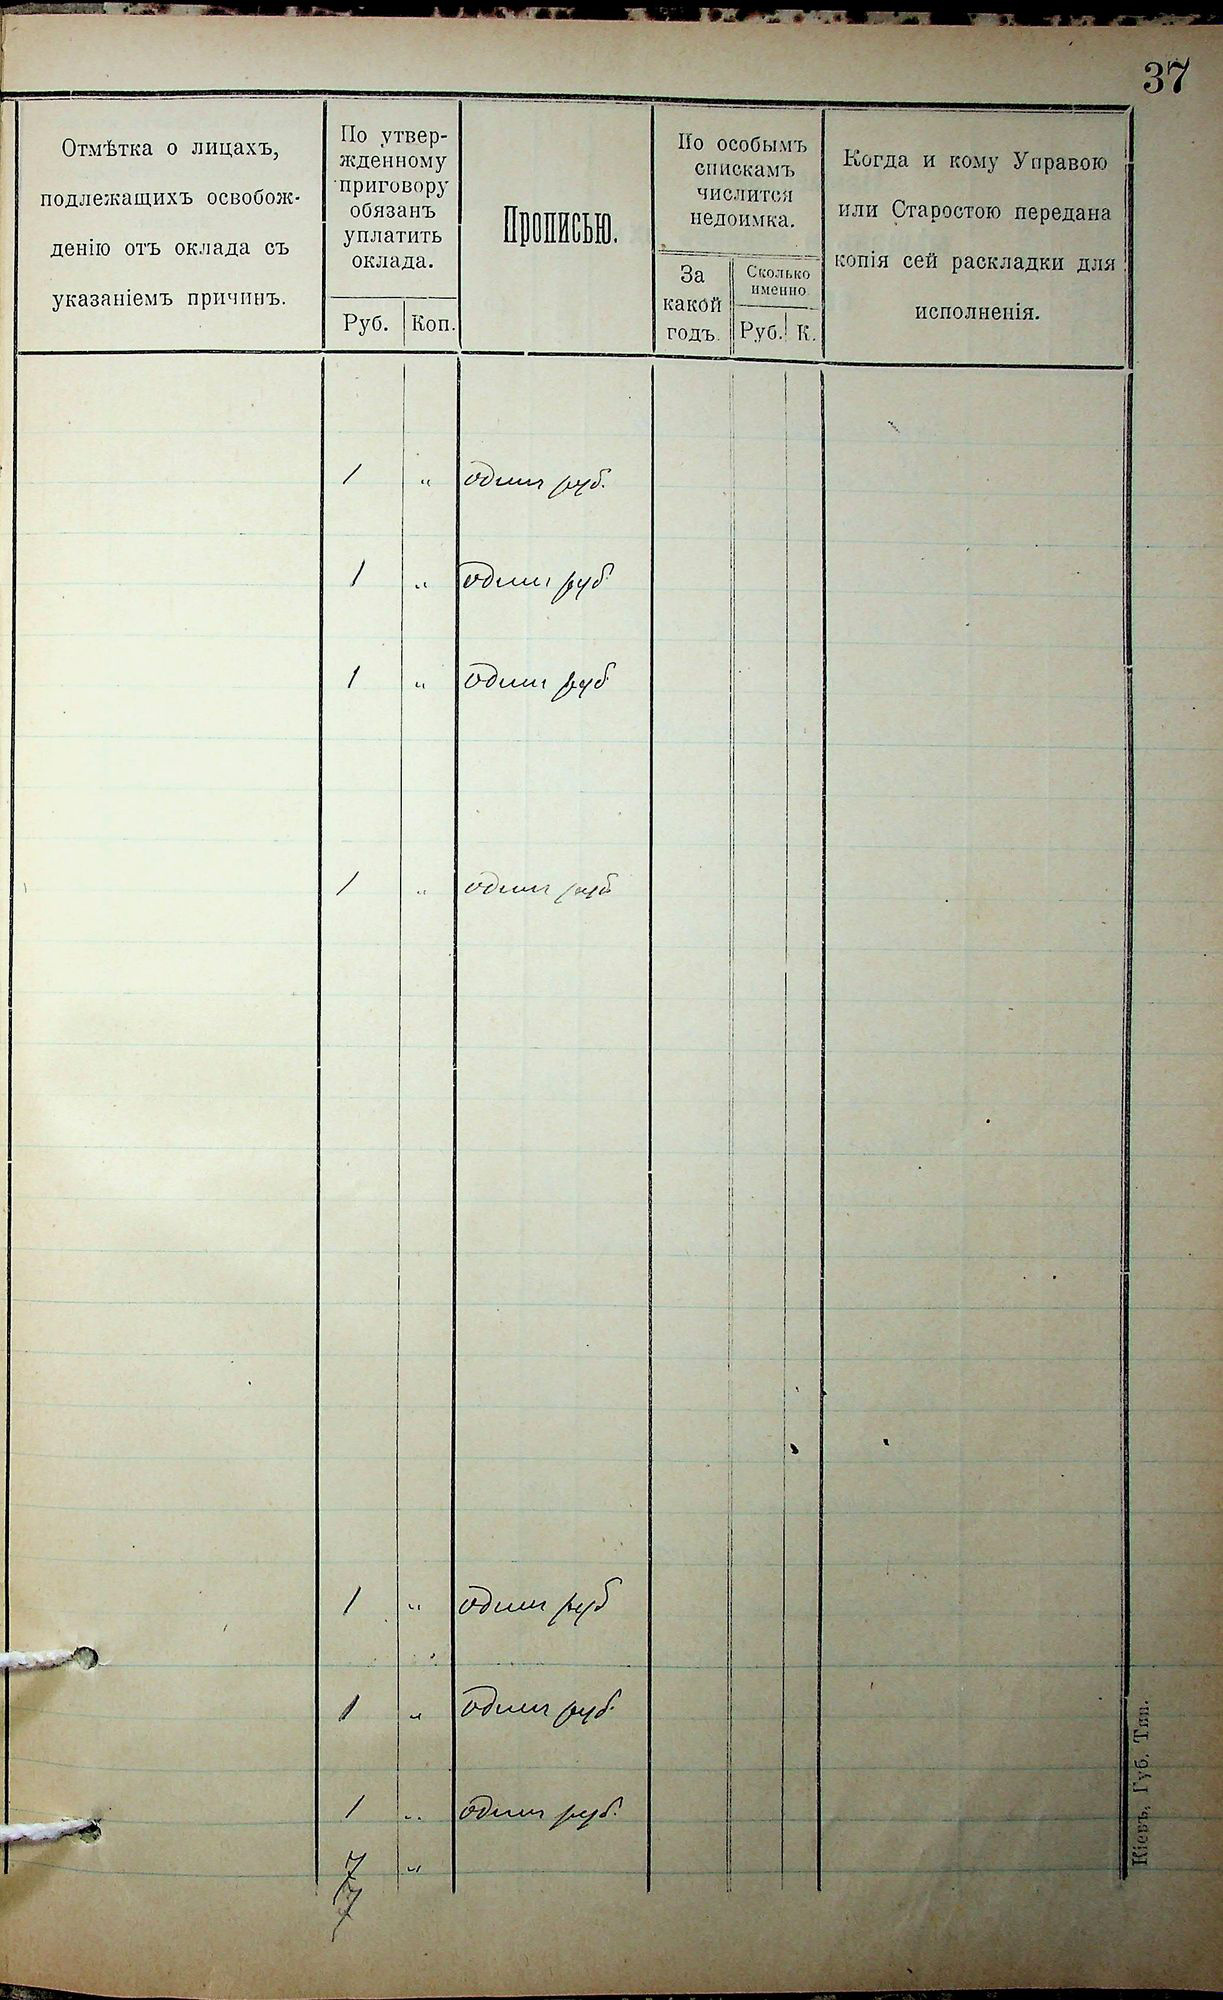 37
Отмѣтка о лицахъ,
подлежащихъ освобож-
денію отъ оклада съ
указаніемъ причинъ.
По утвер-
жденному
приговору
обязанъ
уплатить
оклада.
Руб. Коп.
Прописью.
По особымъ
спискамъ
числится
недоимка.
За
какой
годъ.
Сколько
именно
Руб. К.
Когда и кому Управою
или Старостою передана
копія сей раскладки для
исполненія.
1 " одинъ руб.
1 " одинъ руб
1 " одинъ руб
1 " одинъ руб
1 " одинъ руб
1 " одинъ руб.
1 " одинъ руб.
7 "
7
Кіевъ, Губ. Тип.